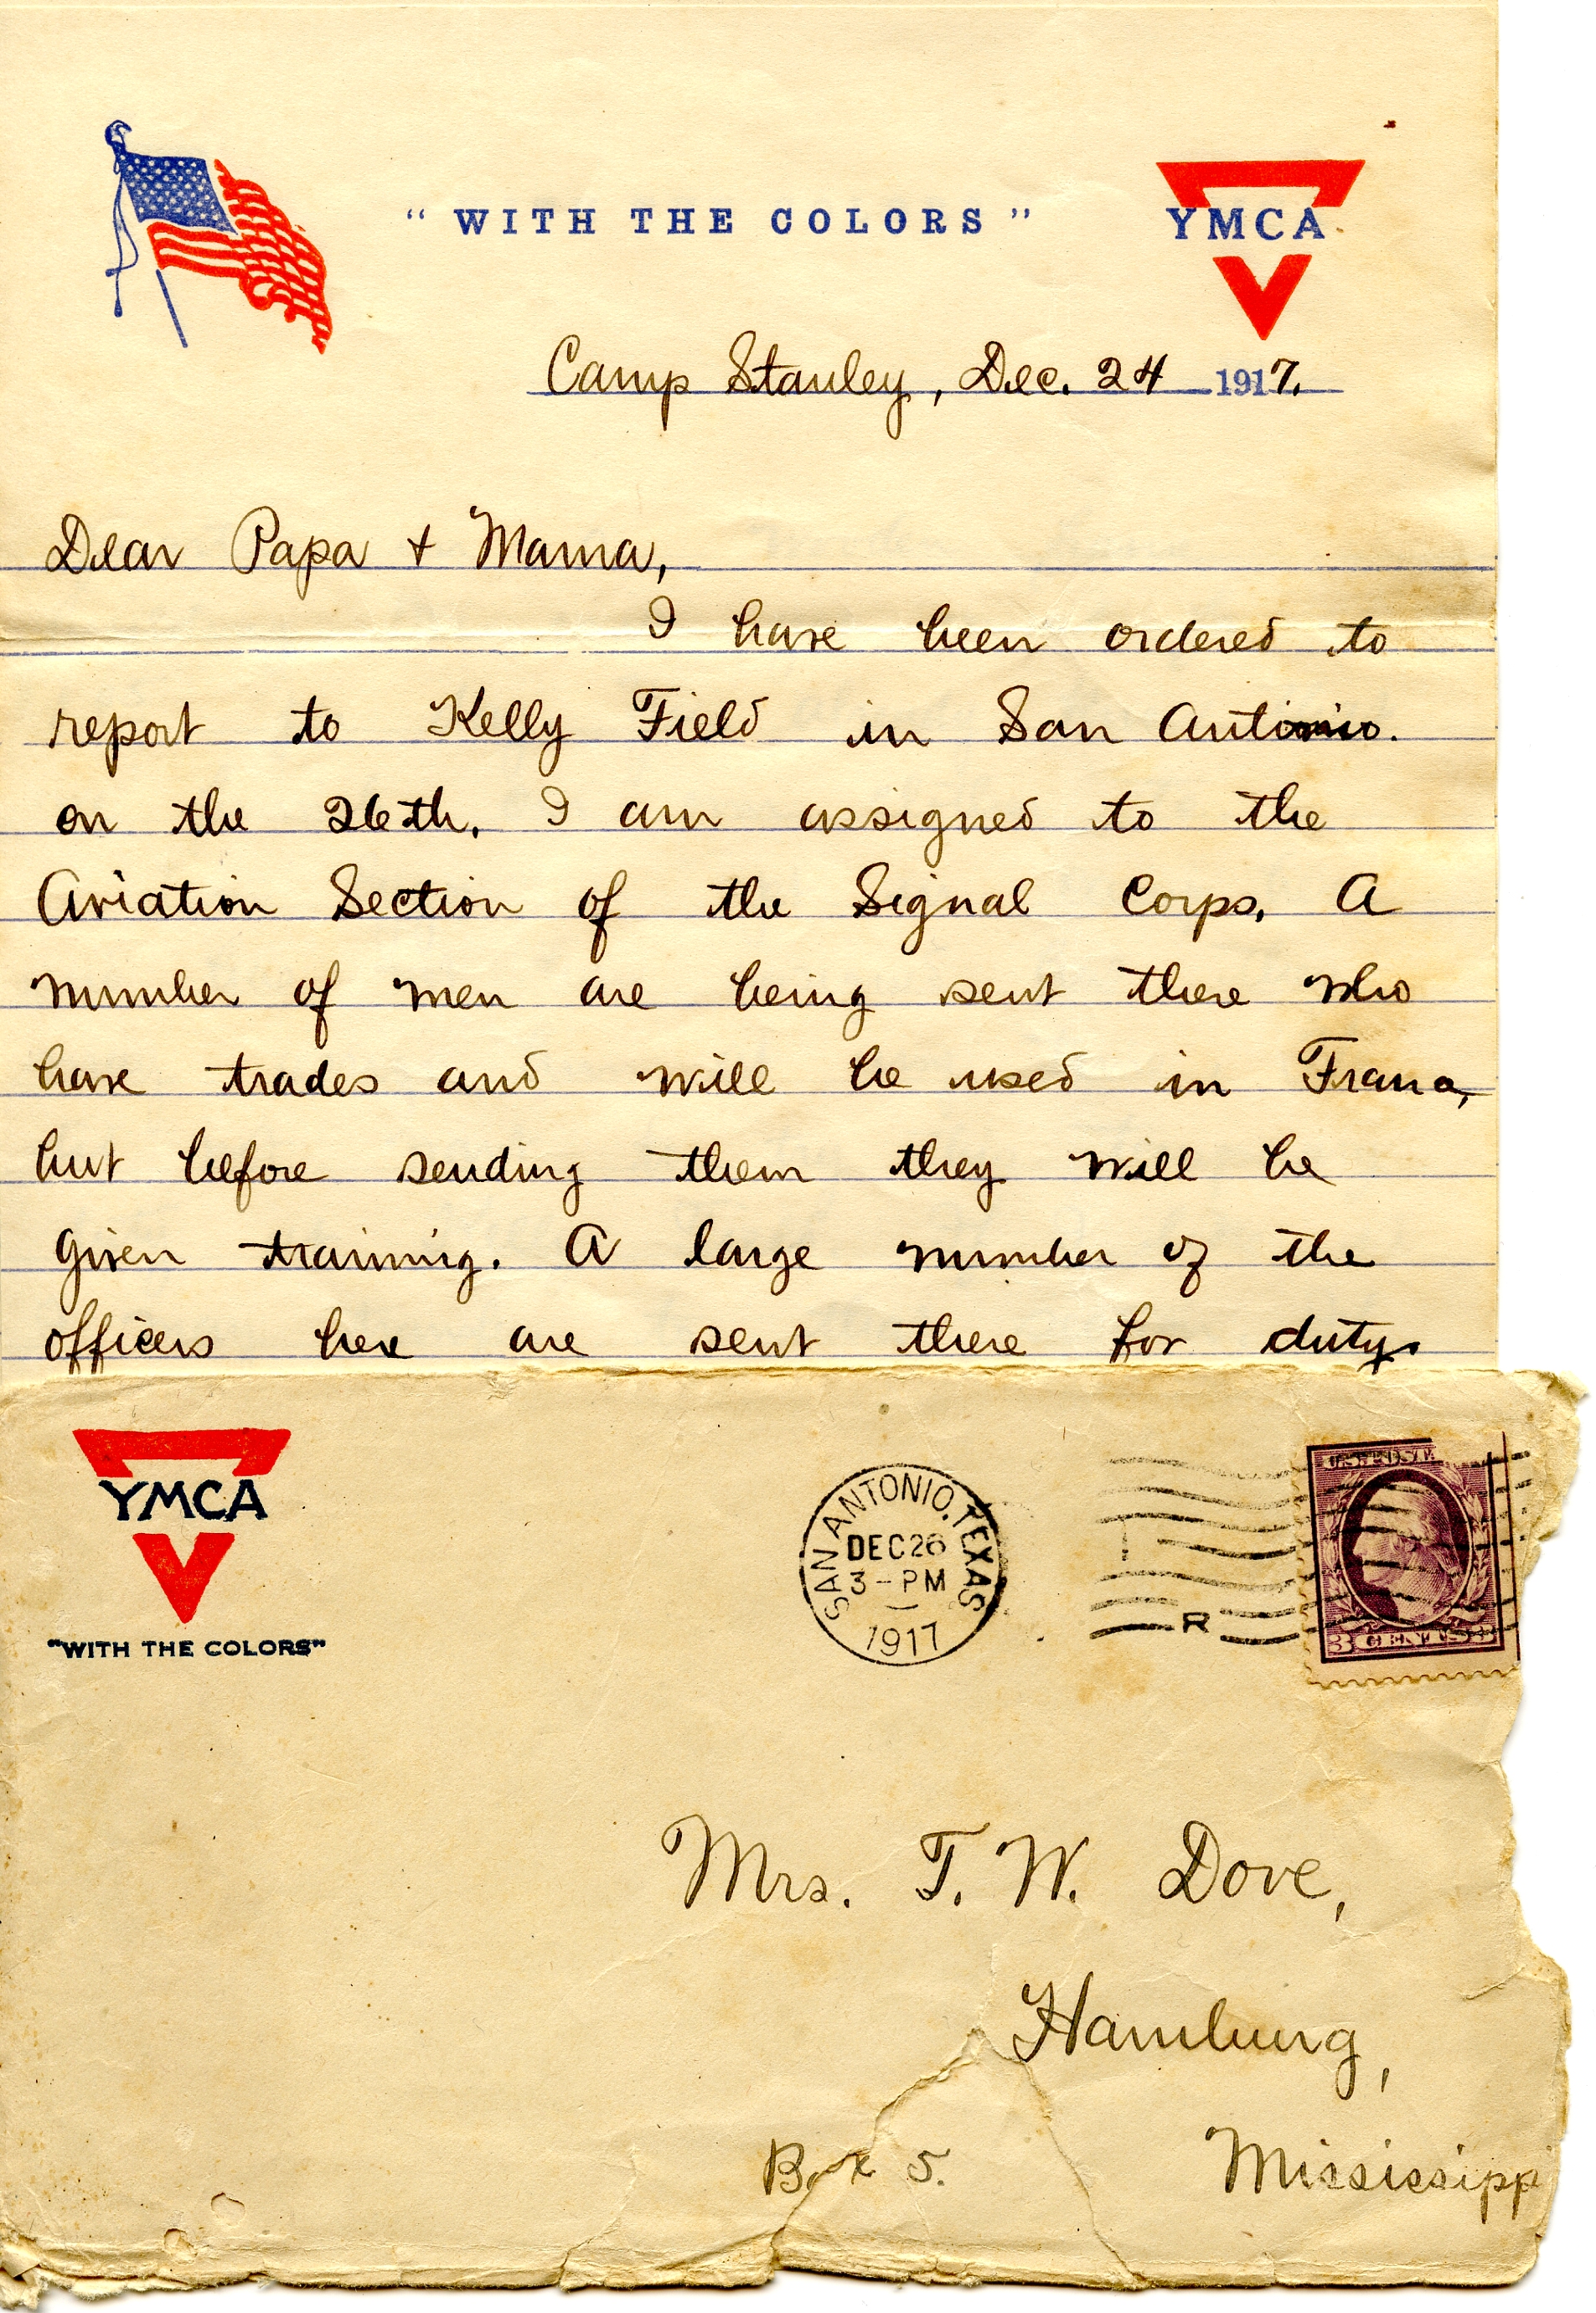 "WITH THE COLORS"
YMCA
Camp Stanley, Dec. 24 1917.
Dear Papa + Mama,
I have been ordered to
report to Kelly Field in San Antonio.
on the 26th. I am assigned to the
Aviation Section of the Signal Corps. A
number of men are being sent there who
have trades and will be used in France,
but before sending them they will be
given training. A large number of the
officers here are sent there for duty.
YMCA
"WITH THE COLORS"
SAN ANTONIO, TEXAS
DEC 26
3-PM
1917
R
U.S. POSTAGE
3 CENTS 3
Mrs. T. W. Dove,
Hamburg,
Box 5.
Mississipp